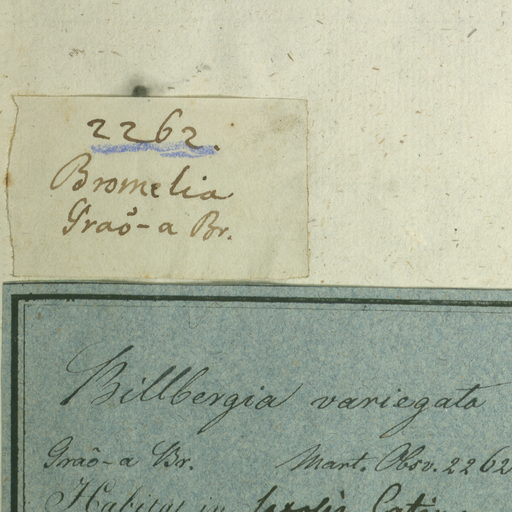 2262.
Bromelia
Graô-a Br.
Billbergia variegata
Graô-a Br. Mart. Obsv. 2262
Habitat in